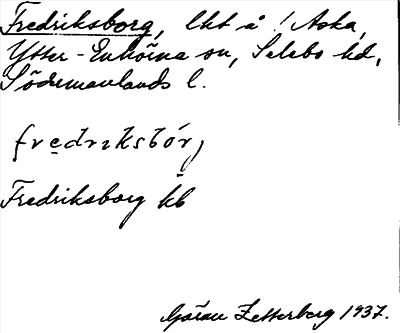 Fredriksborg, lht å ! Aska,
Ytter-Enhörna sn, Selebo hd,
Södermanlands l.
fredriksbórj
Fredriksborg kb
Göran Zetterberg 1937.